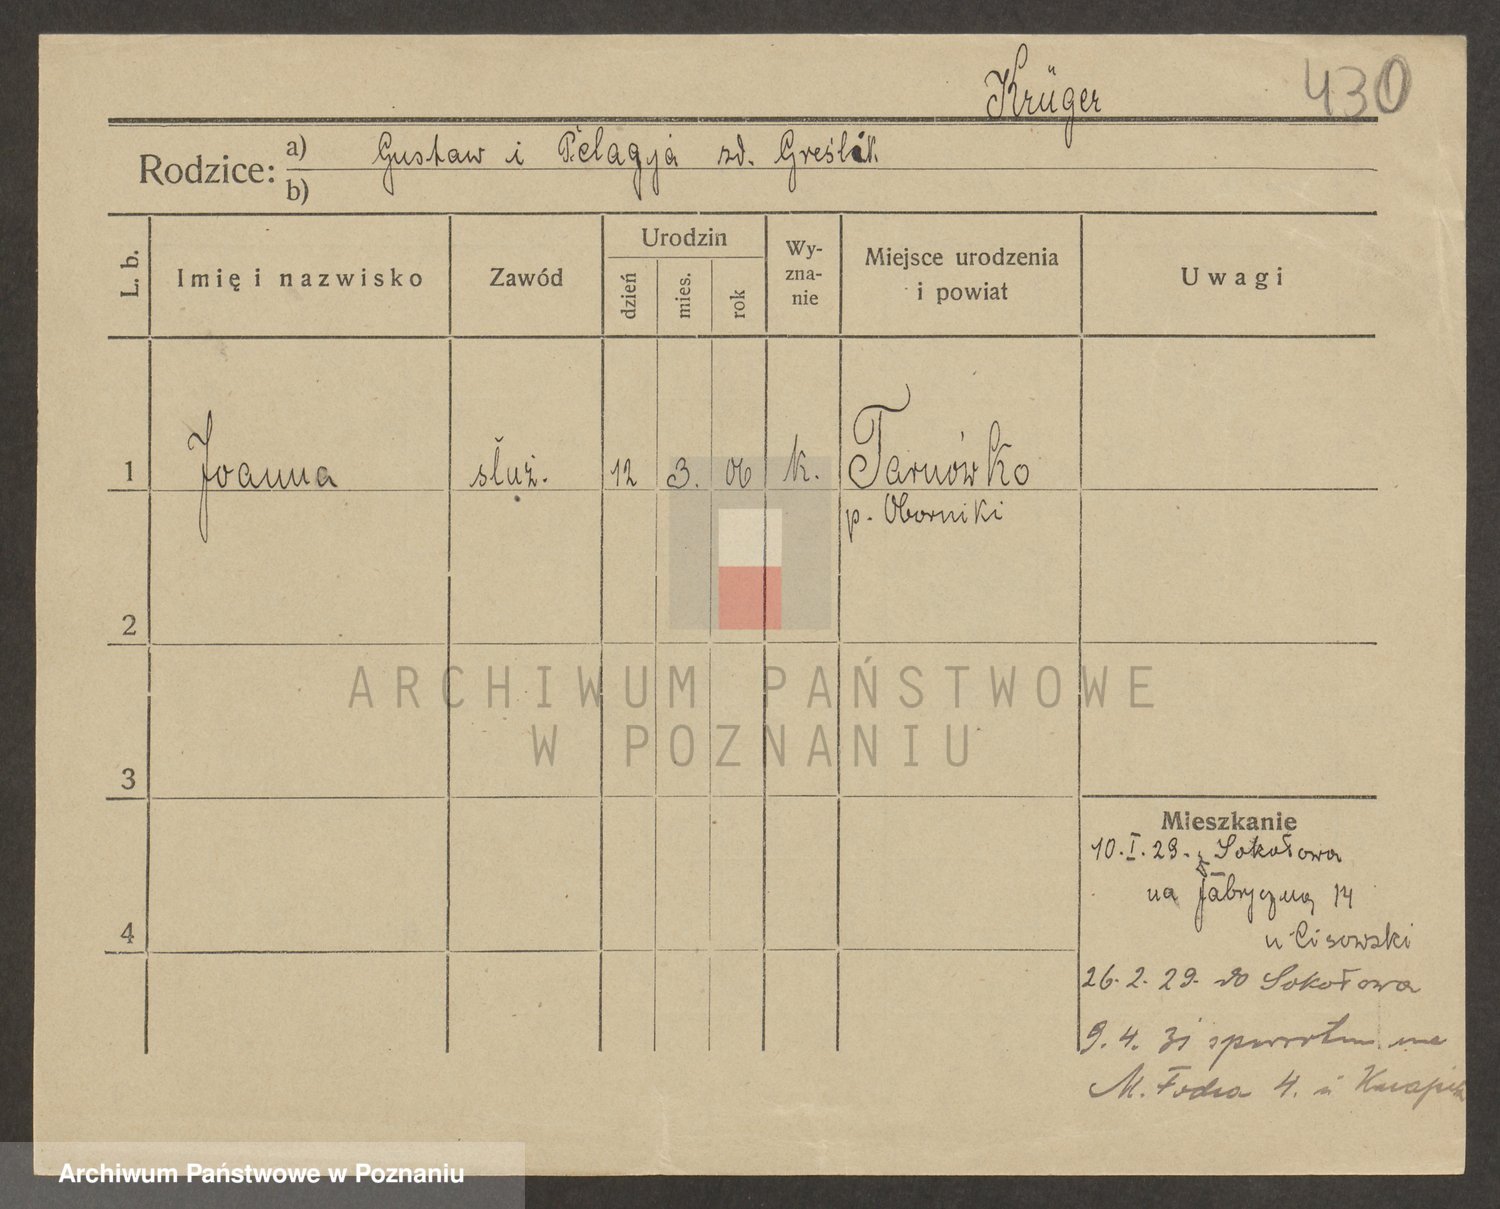 Krüger
430
Rodzice: a) Gustaw i Pelagja zd. Greślik
b)
L. b.
Imię i nazwisko
Zawód
Urodzin
dzień
mies.
rok
Wy-
zna-
nie
Miejsce urodzenia
i powiat
Uwagi
1 Joanna służ. 12 3. 06 k. Tarnówko
p. Oborniki
2
3
4
Mieszkanie
10.I.29. z Sokołowa
na Fabryczną 14
u Cisowski
26.2.29. do Sokołowa
9.4. 31 spowrotem na
M. Focha 4. u
ARCHIWUM PAŃSTWOWE
W POZNANIU
Archiwum Państwowe w Poznaniu